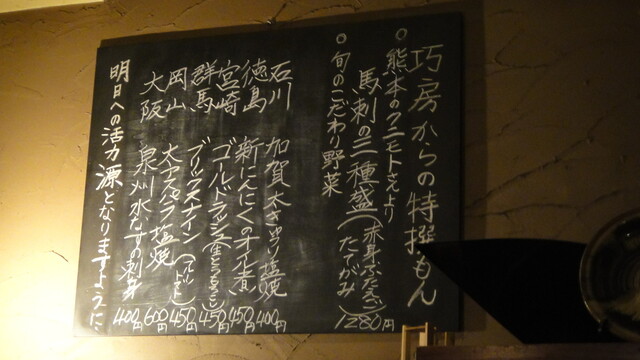 巧房からの特撰もん
○熊本のクニモトさんより
馬刺の三種盛(赤身ふたえご たてがみ) 1280円
○旬のこだわり野菜
石川 加賀太きゅうり塩焼 400円
徳島 新にんにくのオイル煮 450円
宮崎 ゴールドラッシュ(金とうもろこし) 450円
群馬 ブリックスナイン(フルーツトマト) 450円
岡山 大アスパラ塩焼 600円
大阪 泉州水なすの刺身 400円
明日への活力源となりますように…